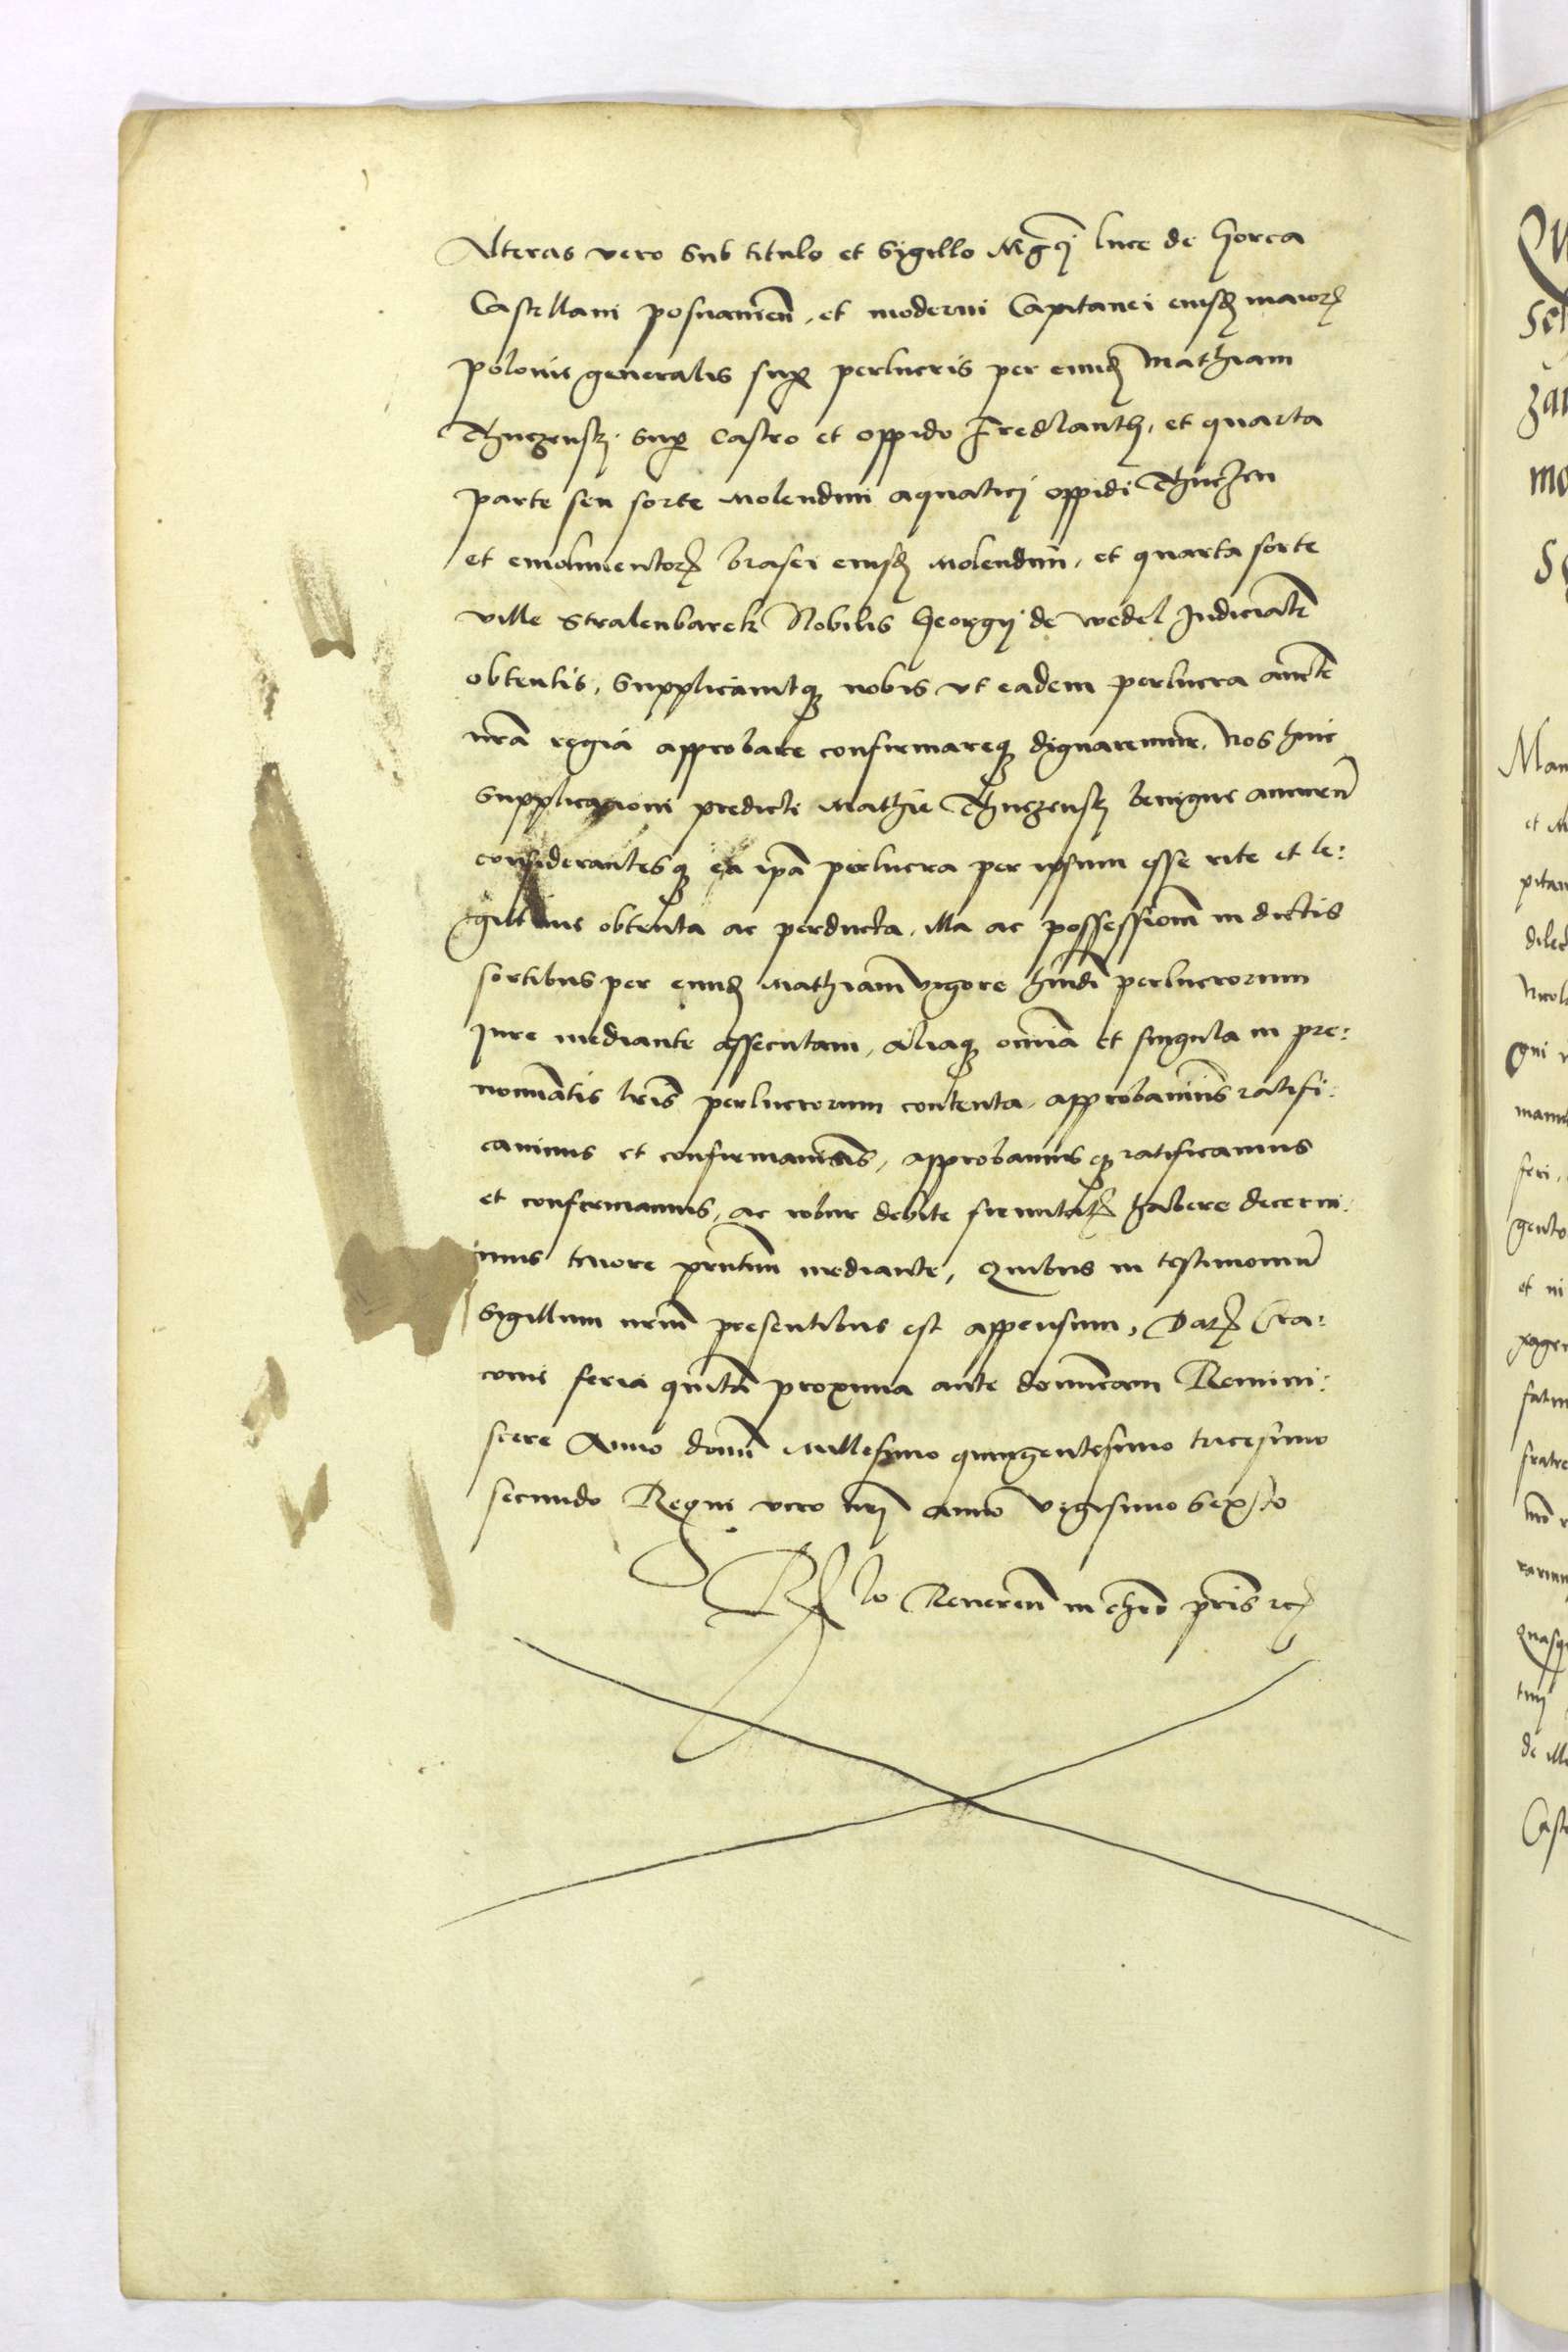 Alteras vero sub titulo et sigillo Mgci luce de Gorca
Castellani posnanien, et moderni Capitanei eiusd maior
polonie generalis sup perlucris per eund Mathiam
Thuczensk sup Castro et oppido Fredlanth, et quarta
parte seu sorte Molendini aquatici oppidi Thuczen
et emolumentor brasei eiusd Molendini, et quarta sorte
ville Stralenbarck Nobilis Georgij de wedel Judicialr
obtentis, Supplicauitq nobis vt eadem perlucra aucte
nra regia approbare confirmareq dignaremur, Nos huic
supplicacioni predicti Mathie Thuczensk benigne annuen
considerantesq ea ipa perlucra per ipsum esse rite et le:
gittime obtenta ac perducta, illa ac possessiom in dictis
sortibus per eund Mathiam vigore hmdi perlucrorum
Jure mediante assecutam, aliaq omnia et singula in pre:
nominatis lris perlucrorum contenta, approbauimus ratifi:
cauimus et confirmauimus, approbamusq ratificamus
et confirmamus, ac robur debite firmitat habere decerni:
mus tenore prntium mediante, Quibus in testimonium
Sigillum nrum presentibus est appensum, Dat Cra:
couie feria quinta proxima ante dominicam Remini:
scere Anno domi Millesimo quingentesimo tricesimo
secundo Regni vero nri anno vigesimo sexto
Relo Reueren in chro pris etc